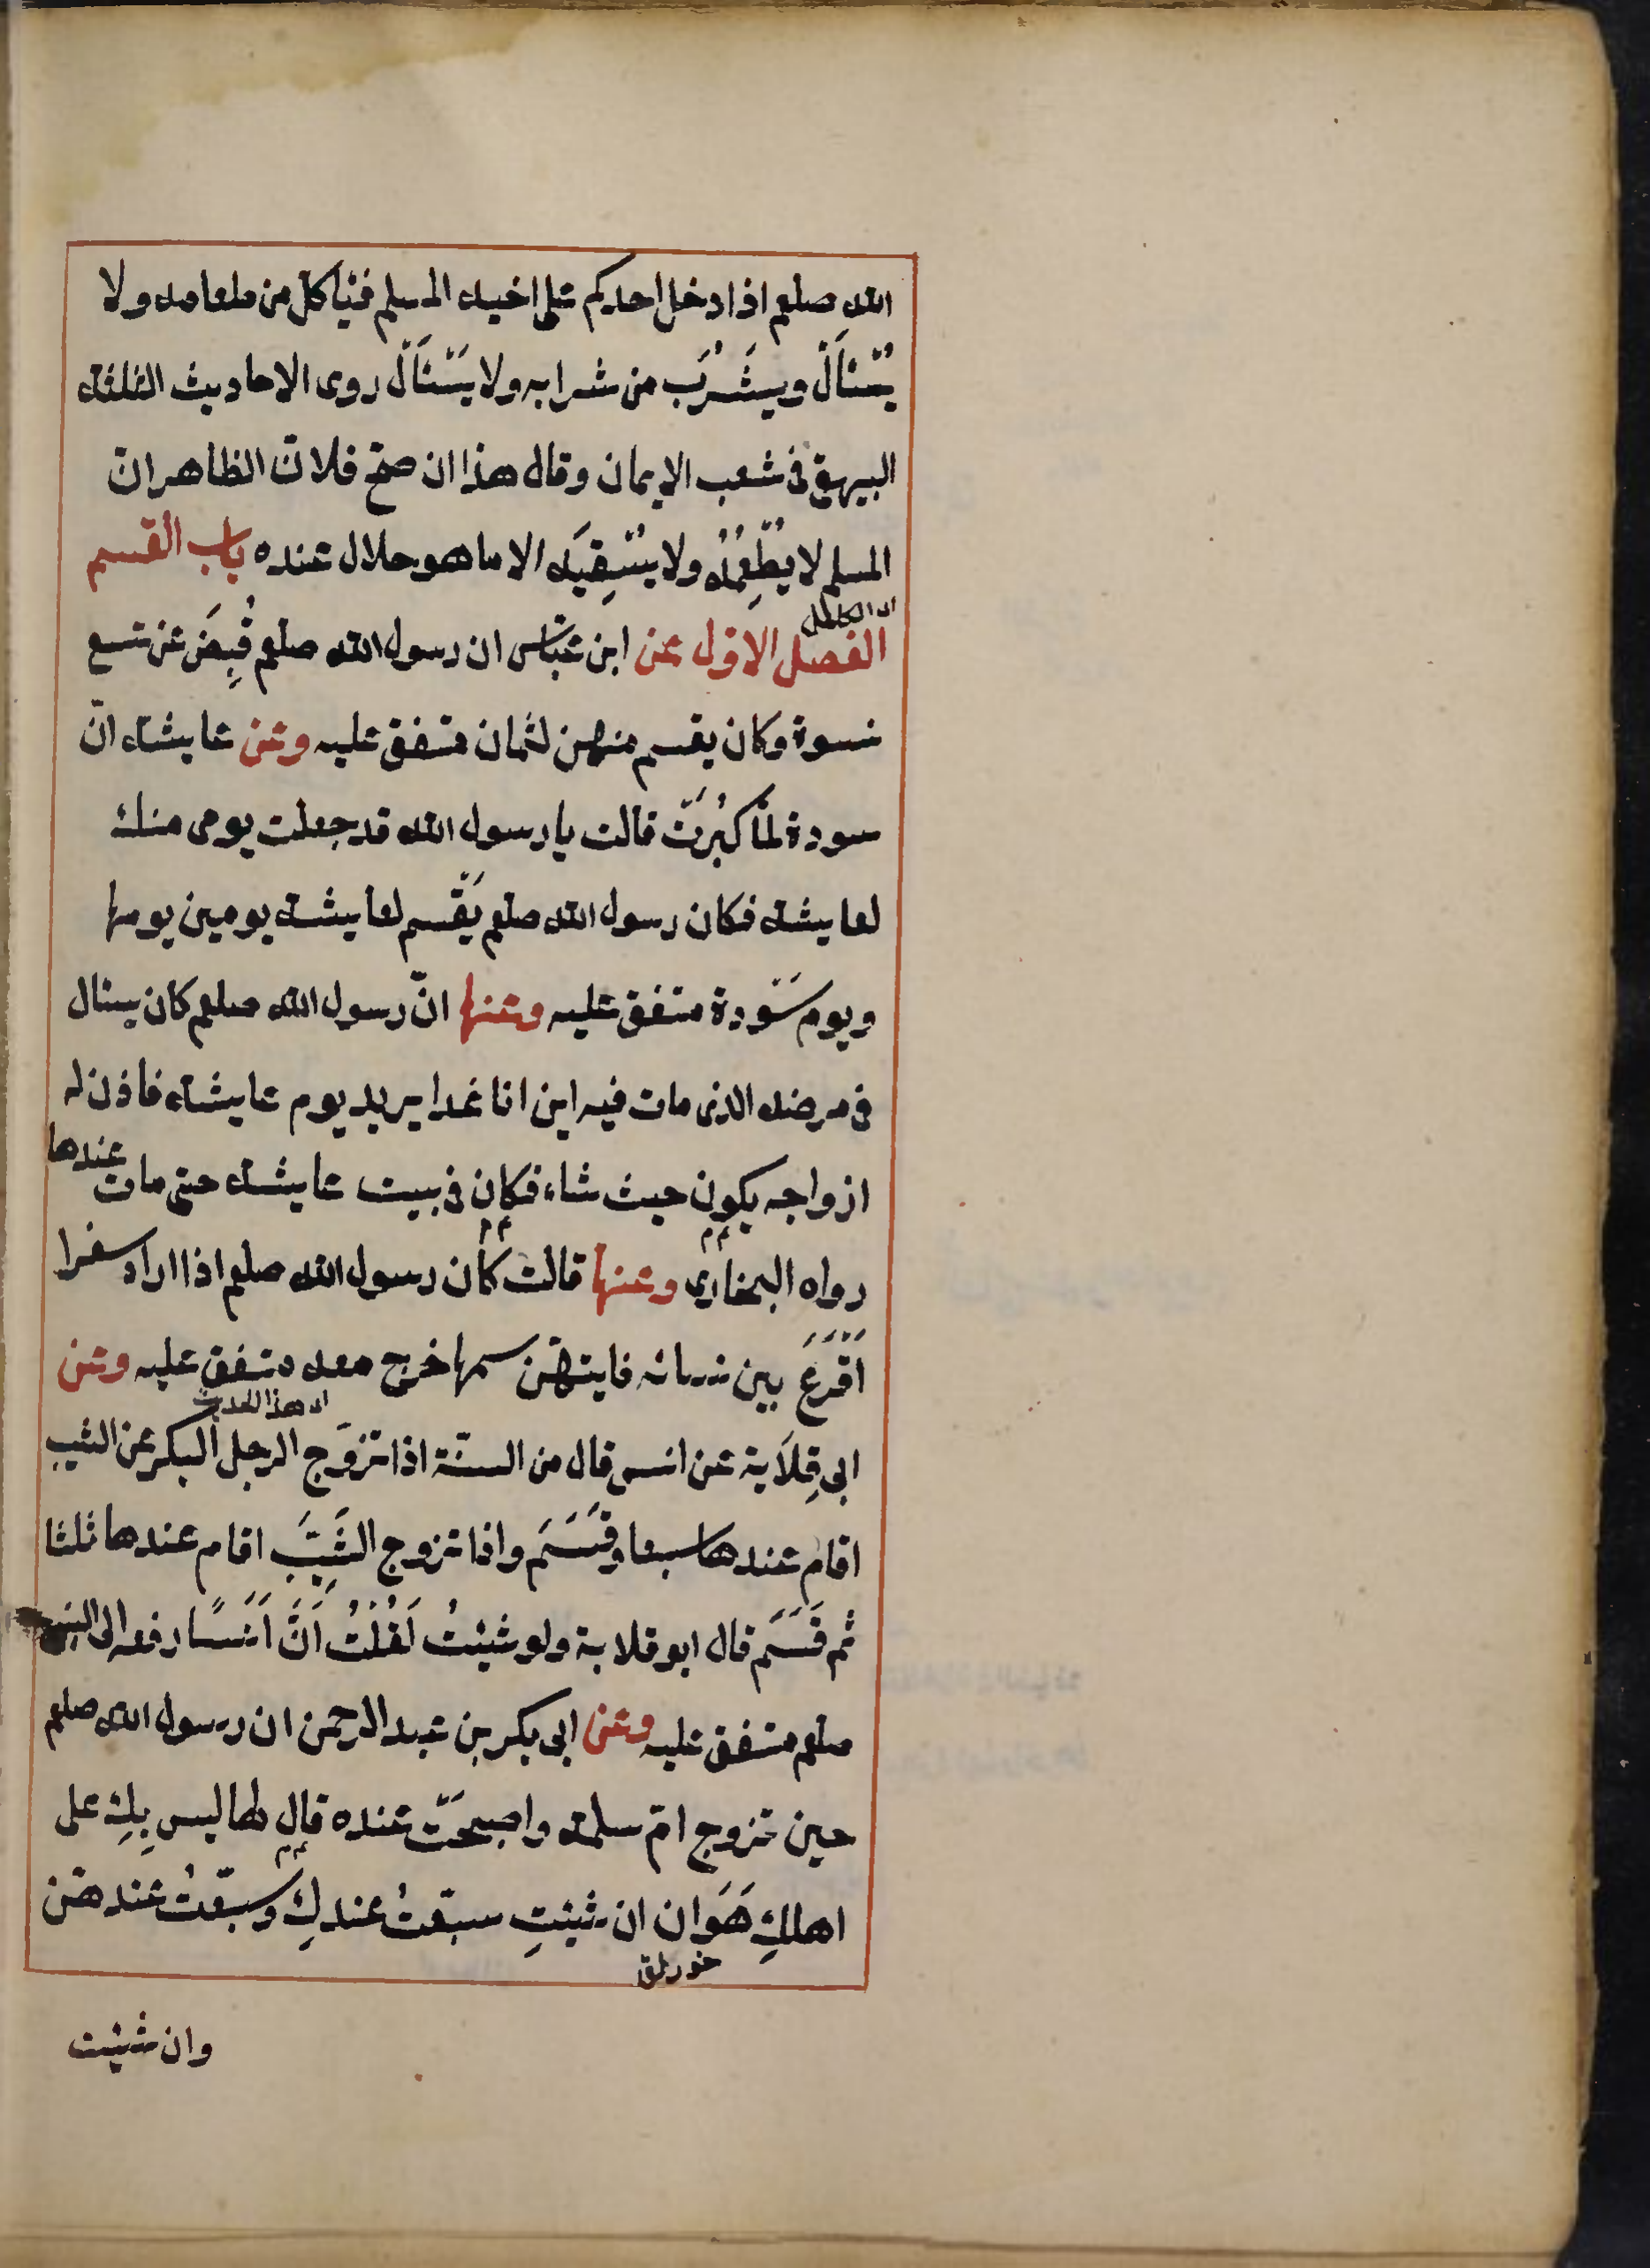 الله صلعم اذا دخل احدكم على اخيه المسلم فليأكل من طعامه ولا
يَسْئَالْ ويشْرَب من شرابه ولا يَسْئَالْ روى الاحاديث الثلثة
البيهقى فى شعب الايمان وقال هذا ان صحّ فلانّ الظاهر انّ
المسلم لا يُطْعِمُهُ ولا يُسْقِيَه الا ما هو حلال عنده باب القسم
الفصل الاوّل عن ابن عبّاس ان رسول الله صلعم قُبِضَ عن تسع
نسوة وكان يقسم منهن لثمان متفق عليه وعن عايشة انّ
سودة لمّا كَبُرَتْ قالت يا رسول الله قد جعلت يومى منك
لعايشة فكان رسول الله صلعم يَقْسم لعايشة يومين يومها
ويوم سَوْدة متفق عليه وعنها انّ رسول الله صلعم كان يسئال
فى مرضه الذى مات فيه اين انا غدا يريد يوم عايشة فاذن له
ازواجه يكون حيث شاء فكان فى بيت عايشة حتى مات عندها
رواه البخارى وعنها قالت كان رسول الله صلعم اذا اراد سفرا
اَقْرَعَ بين نسائه فايتهنّ خرج سهمها خرج معه متفق عليه وعن
ان هذا الحديث
ابى قِلَابة عن انس قال من السنّة اذا تزوّج الرجل البكر عن الثيب
اقام عندها سبعا وقَسَمَ واذا تزوج الثَيِّبَ اقام عندها ثلثا
ثم قَسَمَ قال ابو قلابة ولو شِئتُ لَقُلْتُ اَنَّ اَنَسًا رفعه الى النبى
صلعم متفق عليه وعن ابى بكر بن عبد الرحمن ان رسول الله صلعم
حين تزوج امّ سلمة واصبحَتْ عنده قال لها ليس بِكِ على
اهلكِ هَوَان ان شئتِ سبّعتُ عندكِ وسبّعتُ عندهنّ
وان شئت